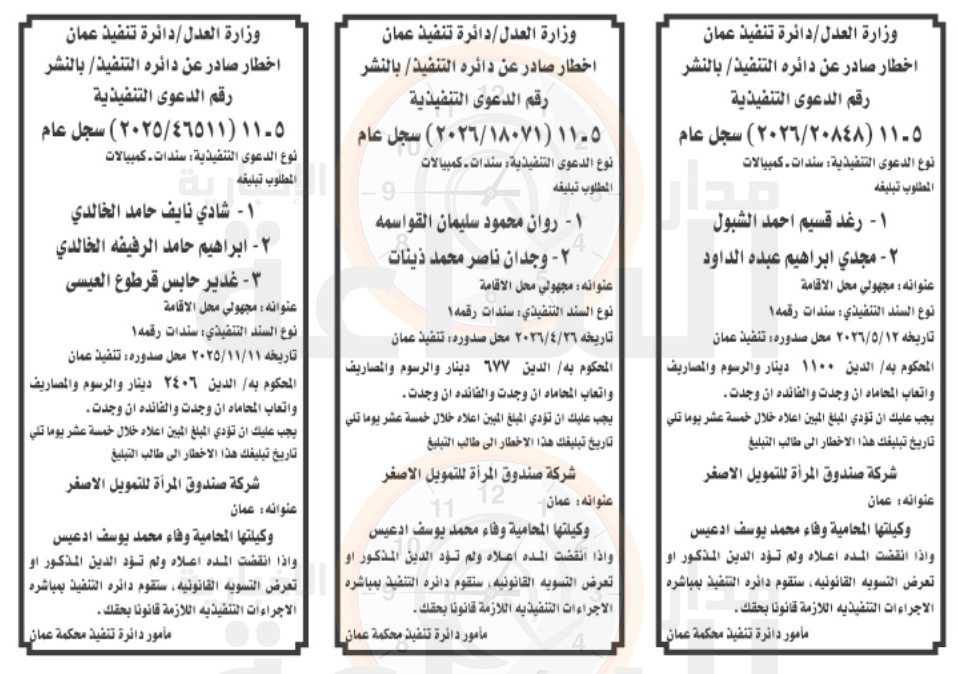 وزارة العدل/دائرة تنفيذ عمان
اخطار صادر عن دائره التنفيذ/ بالنشر
رقم الدعوى التنفيذية
٥ ـ ١١ (٢٠٢٦/٢٠٨٤٨) سجل عام
نوع الدعوى التنفيذية: سندات ـ كمبيالات
المطلوب تبليغه
١- رغد قسيم احمد الشبول
٢- مجدي ابراهيم عبده الداود
عنوانه: مجهولي محل الاقامة
نوع السند التنفيذي: سندات رقمه١
تاريخه ٢٠٢٦/٥/١٢ محل صدوره: تنفيذ عمان
المحكوم به/ الدين ١١٠٠ دينار والرسوم والمصاريف
واتعاب المحاماه ان وجدت والفائده ان وجدت .
يجب عليك ان تؤدي المبلغ المبين اعلاه خلال خمسة عشر يوما تلي
تاريخ تبليغك هذا الاخطار الى طالب التبليغ
شركة صندوق المرأة للتمويل الاصغر
عنوانه: عمان
وكيلتها المحامية وفاء محمد يوسف ادعيس
واذا انقضت المده اعلاه ولم تؤد الدين المذكور او
تعرض التسويه القانونيه، ستقوم دائره التنفيذ بمباشره
الاجراءات التنفيذيه اللازمة قانونا بحقك .
مأمور دائرة تنفيذ محكمة عمان
وزارة العدل/دائرة تنفيذ عمان
اخطار صادر عن دائره التنفيذ/ بالنشر
رقم الدعوى التنفيذية
٥ ـ ١١ (٢٠٢٦/١٨٠٧١) سجل عام
نوع الدعوى التنفيذية: سندات ـ كمبيالات
المطلوب تبليغه
١- روان محمود سليمان القواسمه
٢- وجدان ناصر محمد ذينات
عنوانه: مجهولي محل الاقامة
نوع السند التنفيذي: سندات رقمه١
تاريخه ٢٠٢٦/٤/٢٦ محل صدوره: تنفيذ عمان
المحكوم به/ الدين ٦٧٧ دينار والرسوم والمصاريف
واتعاب المحاماه ان وجدت والفائده ان وجدت .
يجب عليك ان تؤدي المبلغ المبين اعلاه خلال خمسة عشر يوما تلي
تاريخ تبليغك هذا الاخطار الى طالب التبليغ
شركة صندوق المرأة للتمويل الاصغر
عنوانه: عمان
وكيلتها المحامية وفاء محمد يوسف ادعيس
واذا انقضت المده اعلاه ولم تؤد الدين المذكور او
تعرض التسويه القانونيه، ستقوم دائره التنفيذ بمباشره
الاجراءات التنفيذيه اللازمة قانونا بحقك .
مأمور دائرة تنفيذ محكمة عمان
وزارة العدل/دائرة تنفيذ عمان
اخطار صادر عن دائره التنفيذ/ بالنشر
رقم الدعوى التنفيذية
٥ ـ ١١ (٢٠٢٥/٤٦٥١١) سجل عام
نوع الدعوى التنفيذية: سندات ـ كمبيالات
المطلوب تبليغه
١- شادي نايف حامد الخالدي
٢- ابراهيم حامد الرفيفه الخالدي
٣- غدير حابس قرطوع العيسى
عنوانه: مجهولي محل الاقامة
نوع السند التنفيذي: سندات رقمه١
تاريخه ٢٠٢٥/١١/١١ محل صدوره: تنفيذ عمان
المحكوم به/ الدين ٢٤٠٦ دينار والرسوم والمصاريف
واتعاب المحاماه ان وجدت والفائده ان وجدت .
يجب عليك ان تؤدي المبلغ المبين اعلاه خلال خمسة عشر يوما تلي
تاريخ تبليغك هذا الاخطار الى طالب التبليغ
شركة صندوق المرأة للتمويل الاصغر
عنوانه: عمان
وكيلتها المحامية وفاء محمد يوسف ادعيس
واذا انقضت المده اعلاه ولم تؤد الدين المذكور او
تعرض التسويه القانونيه، ستقوم دائره التنفيذ بمباشره
الاجراءات التنفيذيه اللازمة قانونا بحقك .
مأمور دائرة تنفيذ محكمة عمان
مدار الساعة الإخبارية